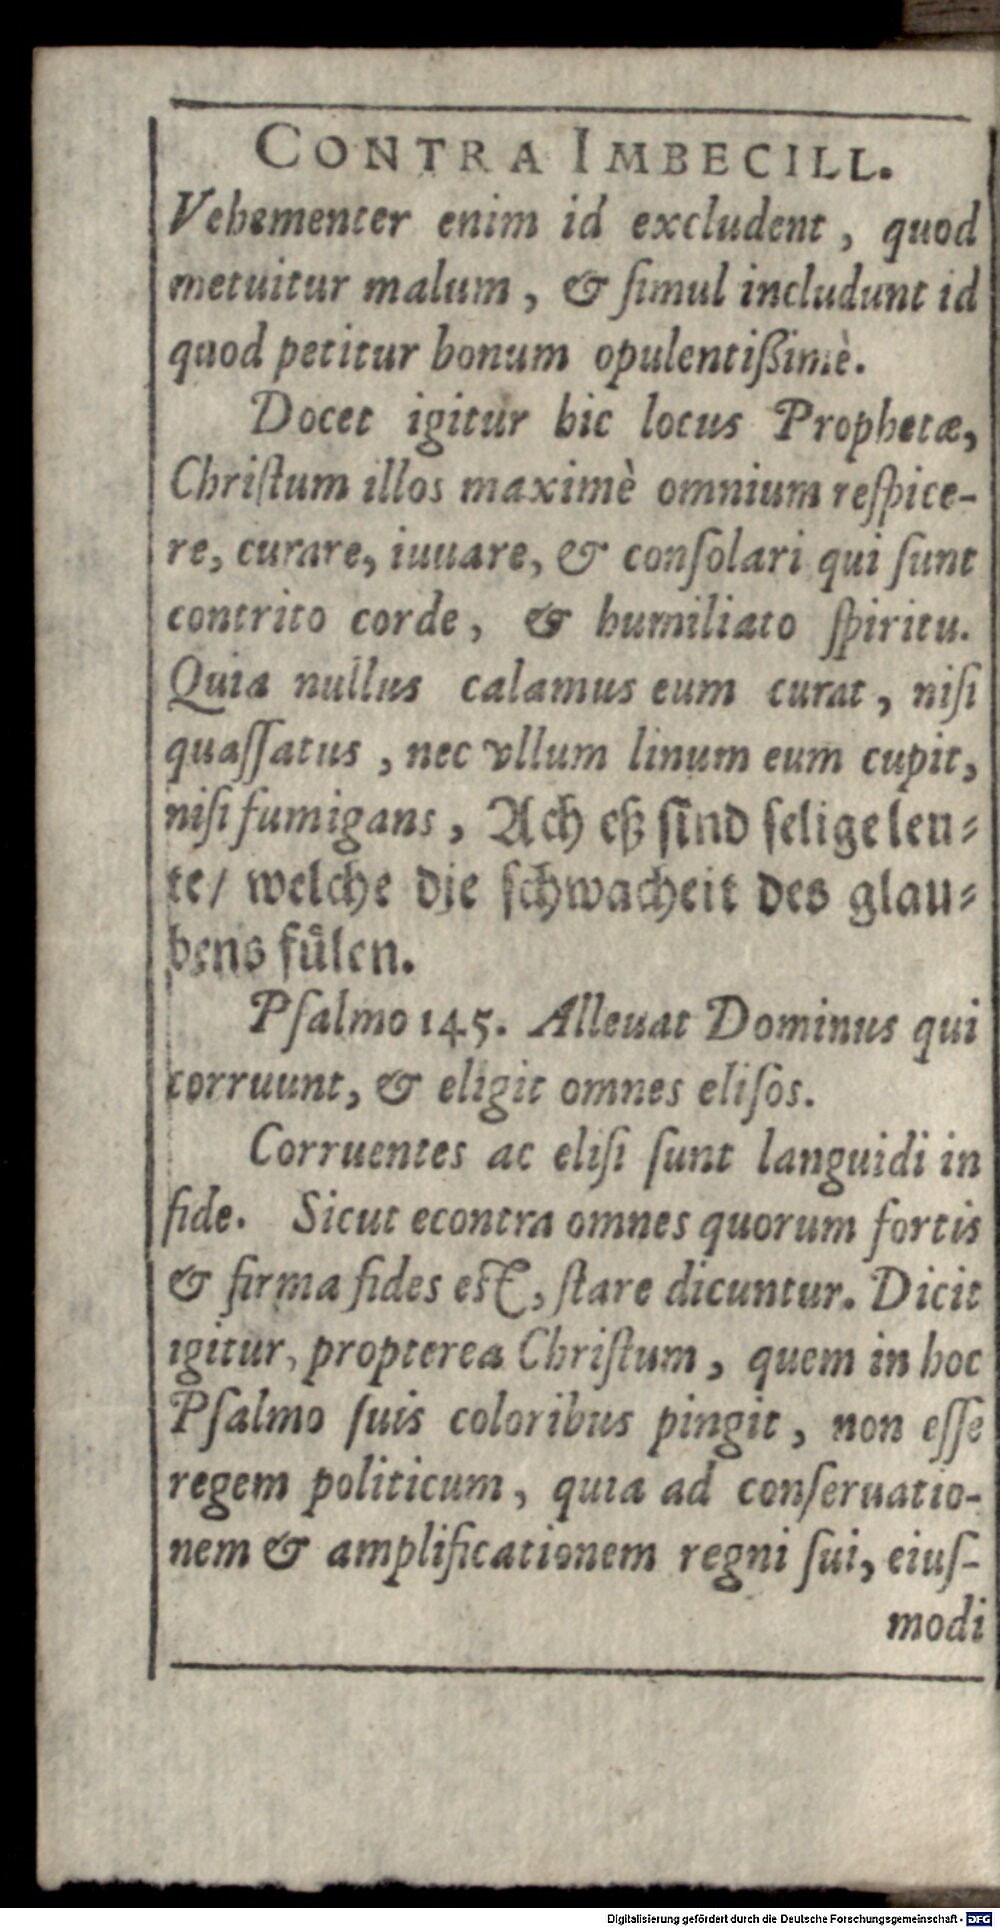 CONTRA IMBECILL.
Vehementer enim id excludent, quod
metuitur malum, & ſimul includunt id
quod petitur bonum opulentißimè.
Docet igitur hic locus Prophetæ,
Chriſtum illos maximè omnium reſpice-
re, curare, iuuare, & conſolari qui ſunt
contrito corde, & humiliato ſpiritu.
Quia nullus calamus eum curat, niſi
quaſſatus, nec vllum linum eum cupit,
niſi fumigans, Ach eß ſind ſelige leu-
te/ welche die ſchwacheit des glau-
bens fülen.
Pſalmo 145. Alleuat Dominus qui
corruunt, & eligit omnes eliſos.
Corruentes ac eliſi ſunt languidi in
fide. Sicut econtra omnes quorum fortis
& firma fides eſt, ſtare dicuntur. Dicit
igitur, propterea Chriſtum, quem in hoc
Pſalmo ſuis coloribus pingit, non eſſe
regem politicum, quia ad conſeruatio-
nem & amplificationem regni ſui, eiuſ-
modi
Digitalisierung gefördert durch die Deutsche Forschungsgemeinschaft - DFG